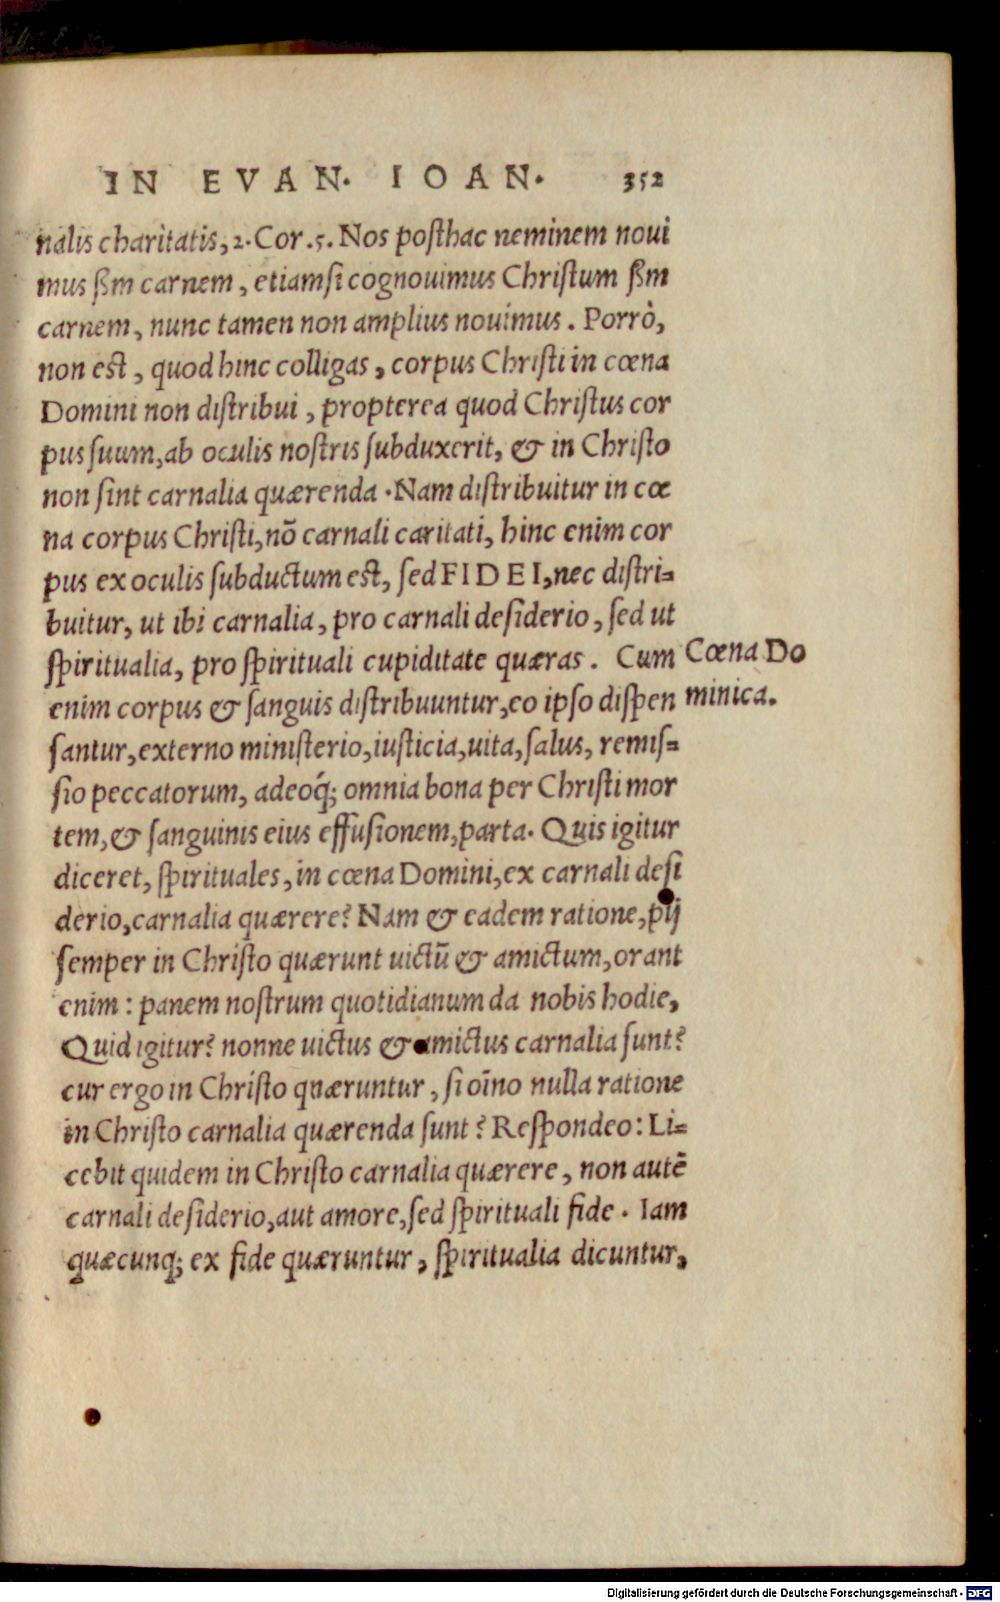 IN EVAN. IOAN. 352
nalis charitatis, 2. Cor. 5. Nos posthac neminem noui
mus ßm carnem, etiamsi cognouimus Christum ßm
carnem, nunc tamen non amplius nouimus. Porrò,
non est, quod hinc colligas, corpus Christi in cœna
Domini non distribui, propterea quod Christus cor
pus suum, ab oculis nostris subduxerit, & in Christo
non sint carnalia quærenda. Nam distribuitur in cœ
na corpus Christi, nõ carnali caritati, hinc enim cor
pus ex oculis subductum est, sed FIDEI, nec distri-
buitur, ut ibi carnalia, pro carnali desiderio, sed ut
spiritualia, pro spirituali cupiditate quæras. Cum
enim corpus & sanguis distribuuntur, eo ipso dispen
santur, externo ministerio, iusticia, uita, salus, remis-
sio peccatorum, adeoq́; omnia bona per Christi mor
tem, & sanguinis eius effusionem, parta. Quis igitur
diceret, spirituales, in cœna Domini, ex carnali desi
derio, carnalia quærere? Nam & eadem ratione, pij
semper in Christo quærunt uictũ & amictum, orant
enim: panem nostrum quotidianum da nobis hodie,
Quid igitur? nonne uictus & amictus carnalia sunt?
cur ergo in Christo quæruntur, si oĩno nulla ratione
in Christo carnalia quærenda sunt? Respondeo: Li-
cebit quidem in Christo carnalia quærere, non autẽ
carnali desiderio, aut amore, sed spirituali fide. Iam
quæcunq; ex fide quæruntur, spiritualia dicuntur,
Cœna Do
minica.
Digitalisierung gefördert durch die Deutsche Forschungsgemeinschaft - DFG